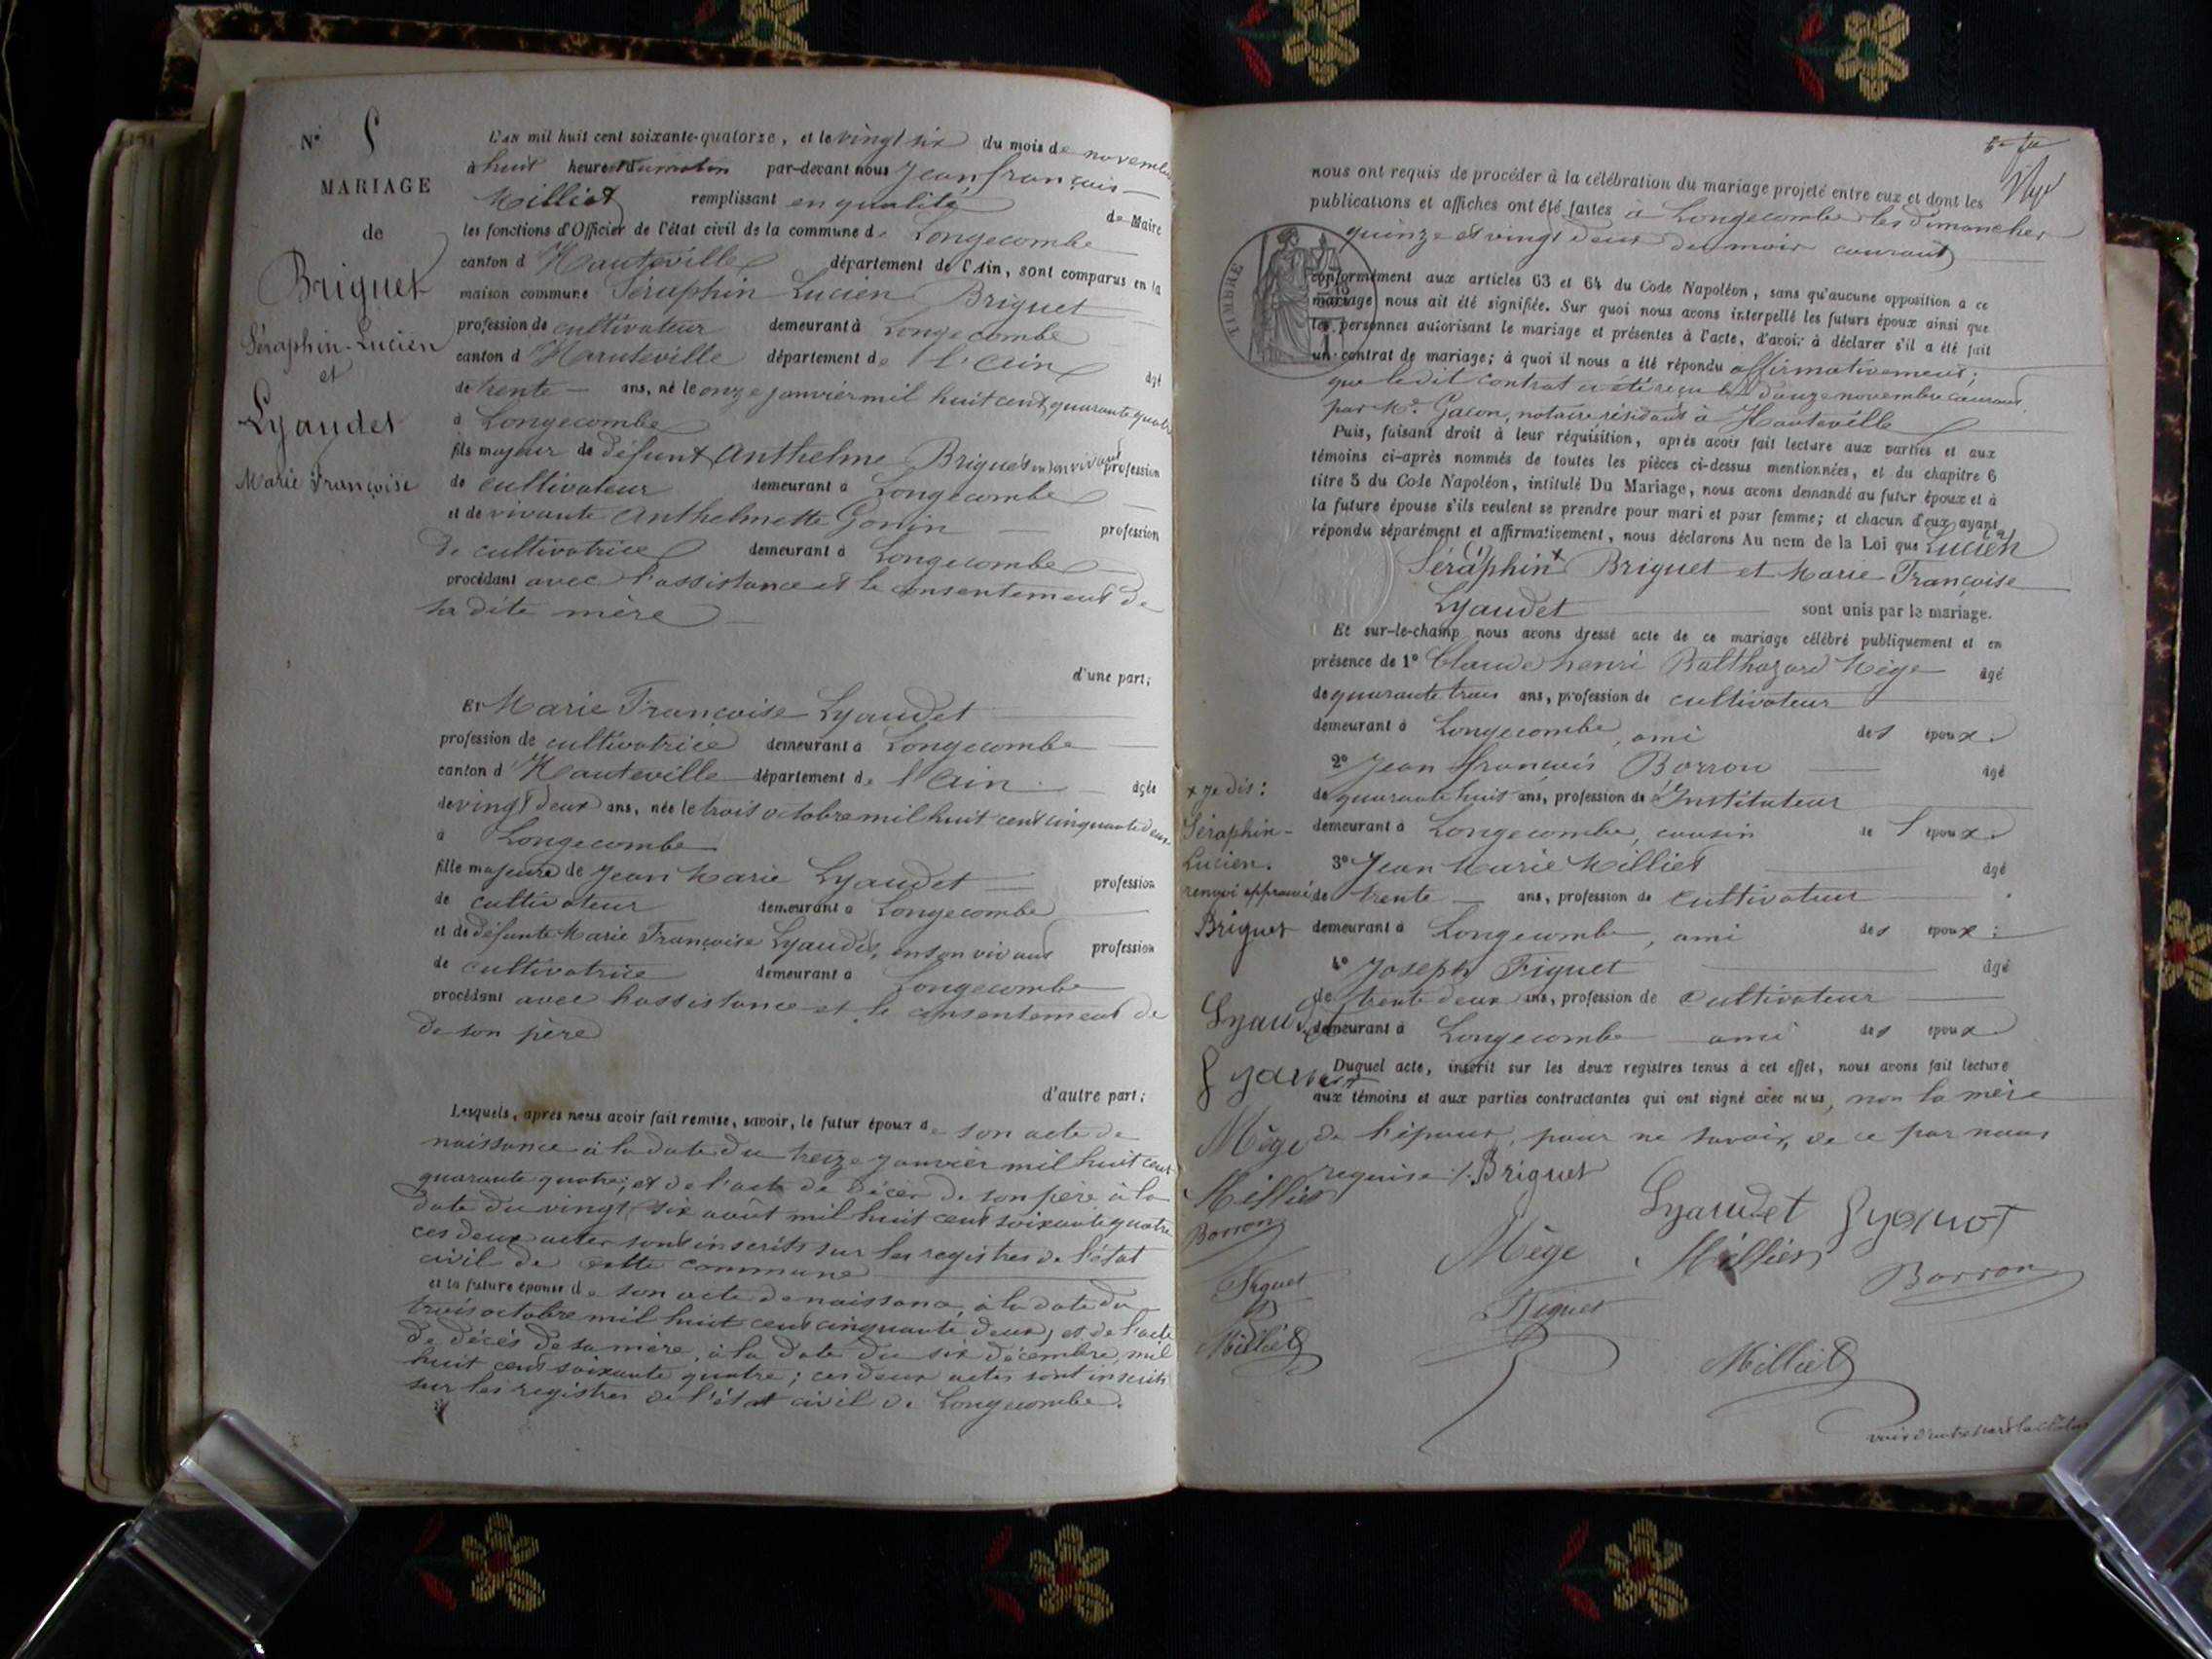 N° 5
MARIAGE
de
Briguet
Séraphin-Lucien
et
Lyaudet
Marie Françoise
L'an mil huit cent soixante-quatorze, et le vingt six du mois de novembre
à huit heures du matin par-devant nous Jean françois
Milliet remplissant en qualité de Maire
les fonctions d'Officier de l'état civil de la commune de Longecombe
canton d'Hauteville département de l'Ain, sont comparus en la
maison commune Séraphin Lucien Briguet
profession de cultivateur demeurant à Longecombe
canton d'Hauteville département de l'Ain âgé
de trente ans, né le onze janvier mil huit cent quarante quatre
à Longecombe
fils majeur de défunt Anthelme Briguet en son vivant profession
de cultivateur demeurant à Longecombe
et de vivante Anthelmette Gonin profession
de cultivatrice demeurant à Longecombe
procédant avec l'assistance et le consentement de
sa dite mère
d'une part;
Et Marie Françoise Lyaudet
profession de cultivatrice demeurant à Longecombe
canton d'Hauteville département de l'Ain âgée
de vingt deux ans, née le trois octobre mil huit cent cinquante deux
à Longecombe
fille majeure de Jean Marie Lyaudet profession
de cultivateur demeurant à Longecombe
et de défunte Marie Françoise Lyaudet, en son vivant profession
de cultivatrice demeurant à Longecombe
procédant avec l'assistance et le consentement de
de son père
d'autre part;
Lesquels, après nous avoir fait remise, savoir, le futur époux de son acte de
naissance à la date du treize janvier mil huit cent
quarante quatre; et de l'acte de décès de son père à la
date du vingt six août mil huit cent soixante quatre
ces deux actes sont inscrits sur les registres de l'état
civil de cette commune
et la future épouse de son acte de naissance, à la date du
trois octobre mil huit cent cinquante deux, et de l'acte
de décès de sa mère, à la date du six décembre, mil
huit cent soixante quatre; ces deux actes sont inscrits
sur les registres de l'état civil de Longecombe.
nous ont requis de procéder à la célébration du mariage projeté entre eux et dont les
publications et affiches ont été faites à Longecombe les dimanches
quinze et vingt deux du mois courant
TIMBRE
conformément aux articles 63 et 64 du Code Napoléon, sans qu'aucune opposition à ce
mariage nous ait été signifiée. Sur quoi nous avons interpellé les futurs époux ainsi que
les personnes autorisant le mariage et présentes à l'acte, d'avoir à déclarer s'il a été fait
un contrat de mariage; à quoi il nous a été répondu affirmativement;
que le dit contrat a été reçu le douze novembre courant
par Me. Gacon, notaire résidant à Hauteville
Puis, faisant droit à leur réquisition, après avoir fait lecture aux parties et aux
témoins ci-après nommés de toutes les pièces ci-dessus mentionnées, et du chapitre 6
titre 5 du Code Napoléon, intitulé Du Mariage, nous avons demandé au futur époux et à
la future épouse s'ils veulent se prendre pour mari et pour femme; et chacun d'eux ayant
répondu séparément et affirmativement, nous déclarons Au nom de la Loi que Lucien (2)
Séraphin (1) x Briguet et Marie Françoise
Lyaudet sont unis par le mariage.
Et sur-le-champ nous avons dressé acte de ce mariage célébré publiquement et en
présence de 1° Claude henri Balthazard Mège âgé
de quarante trois ans, profession de cultivateur
demeurant à Longecombe, ami des époux.
2° Jean françois Borron âgé
de quarante huit ans, profession de d'Instituteur
demeurant à Longecombe, cousin de l'époux.
3° Jean Marie Milliet âgé
de trente ans, profession de cultivateur
demeurant à Longecombe, ami des époux;
4° Joseph Figuet âgé
de trente deux ans, profession de cultivateur
demeurant à Longecombe ami des époux
Duquel acte, inscrit sur les deux registres tenus à cet effet, nous avons fait lecture
aux témoins et aux parties contractantes qui ont signé avec nous, non la mère
de l'époux, pour ne savoir, de ce par nous
requise /. Briguet
Lyaudet Lyaudet
Mège Milliet Borron
Figuet
Milliet
x je dis:
Séraphin-
Lucien.
renvoi approuvé
Briguet
Lyaudet
Lyaudet
Mège
Milliet
Borron
Figuet
Milliet